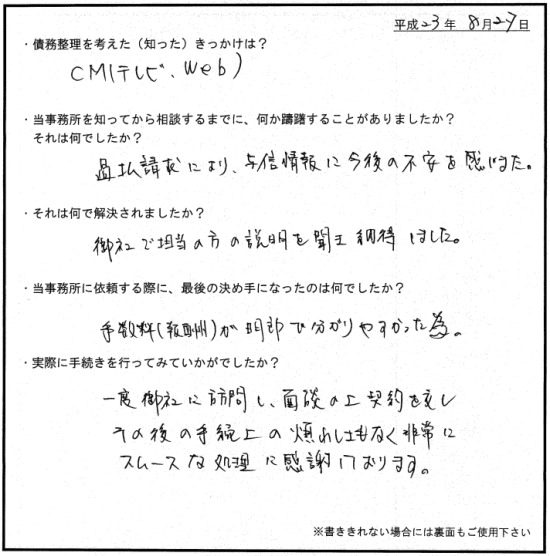 平成23年 8月27日
・債務整理を考えた（知った）きっかけは？
CM(テレビ、Web)
・当事務所を知ってから相談するまでに、何か躊躇することがありましたか？
それは何でしたか？
過払請求により、与信情報に今後の不安を感じた。
・それは何で解決されましたか？
御社で担当の方の説明を聞き納得しました。
・当事務所に依頼する際に、最後の決め手になったのは何でしたか？
手数料(報酬)が明郎で分かりやすかった為。
・実際に手続きを行ってみていかがでしたか？
一度御社に訪問し、面談の上契約を交し
その後の手続上の煩わしさもなく非常に
スムースな処理に感謝しております。
※書ききれない場合には裏面もご使用下さい